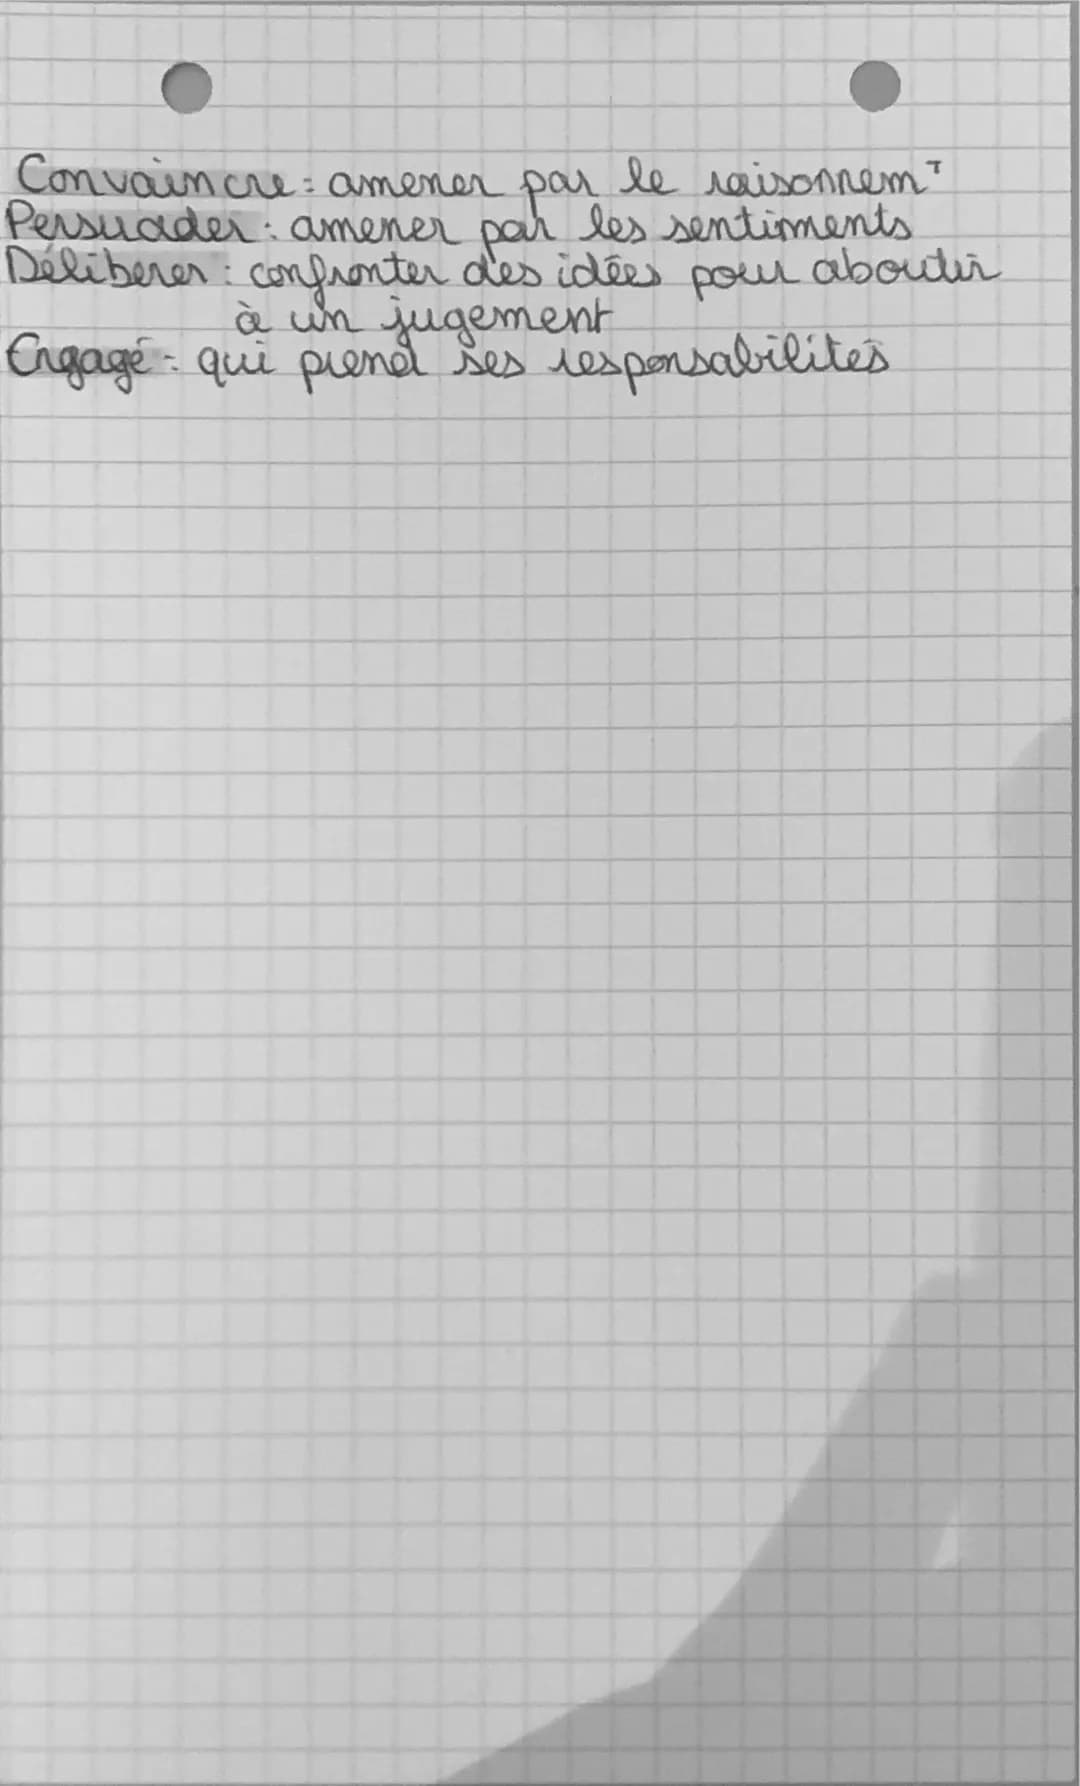 Convaincre : amener par le raisonnemᵀ
Persuader : amener par les sentiments
Délibérer : confronter des idées pour aboutir
à un jugement
Engagé : qui prend ses responsabilités